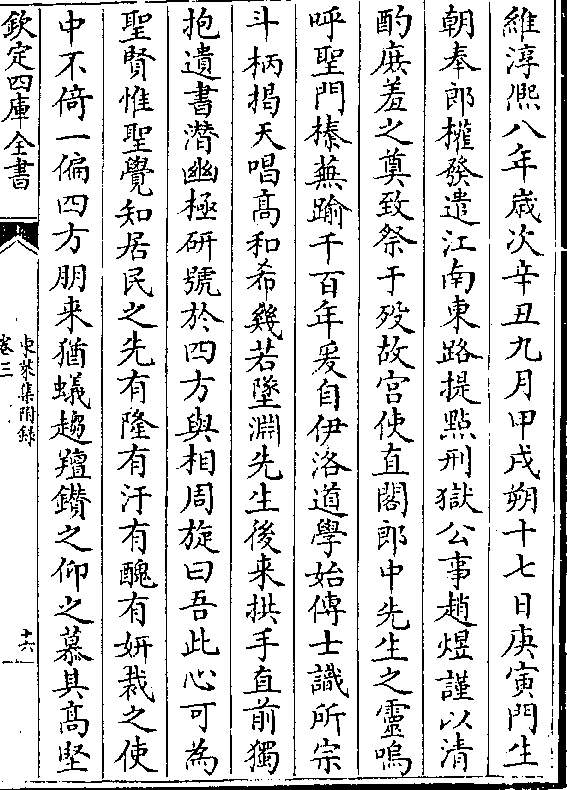 維淳熈八年嵗次辛丑九月甲戌朔十七日庚寅門生
朝奉郎權發遣江南東路提㸃刑獄公事趙煜謹以清
酌庶羞之奠致祭于殁故宫使直閣郎中先生之靈嗚
呼聖門榛蕪踰千百年爰自伊洛道學始傳士識所宗
斗柄掲天唱髙和希幾若墜淵先生後来拱手直前獨
抱遺書潛幽極研號於四方與相周旋曰吾此心可為
聖賢惟聖覺知居民之先有隆有汙有醜有妍裁之使
中不倚一偏四方朋来猶蟻趨羶鑚之仰之慕其髙堅
欽定四庫全書
東萊集附録
卷三
十六